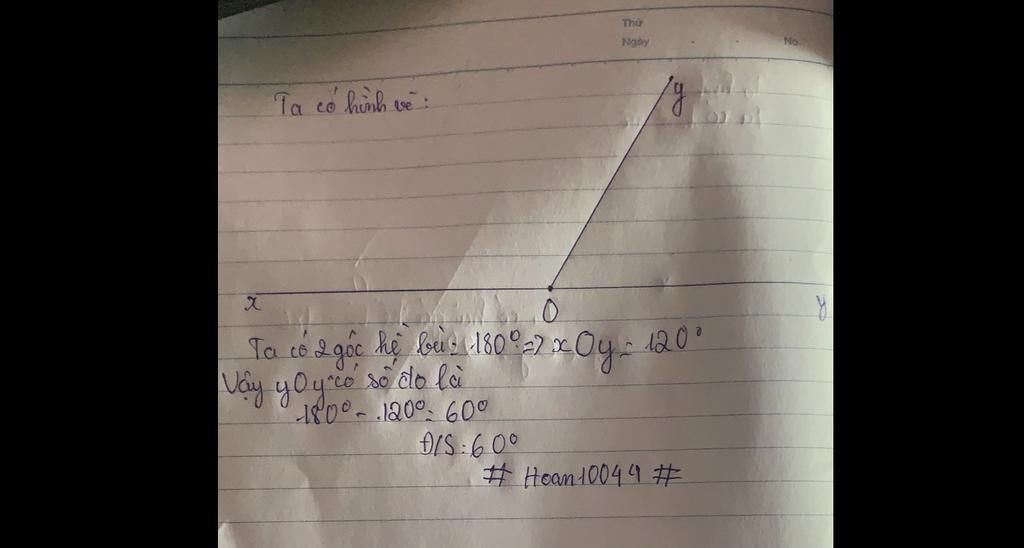 Thứ
Ngày
No
Ta có hình vẽ:
y
x
O
y
Ta có 2 góc hề bù = 180° => xOy = 120°
Vậy yOy' có số đo là
180° - 120° = 60°
Đ/S: 60°
# Hoan10044 #